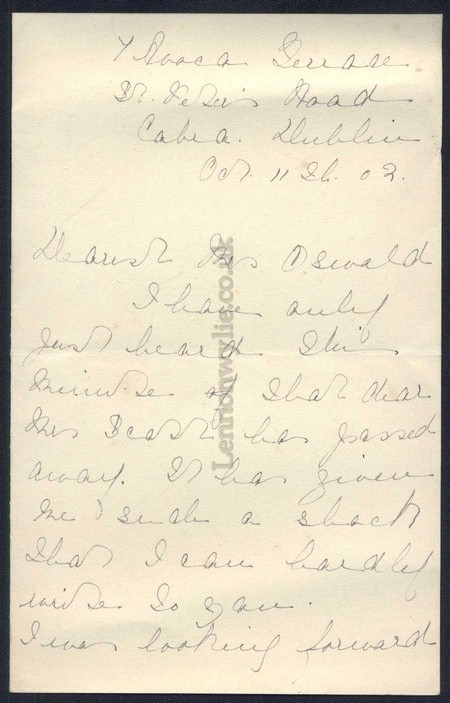 7 Avoca Terrace
St. Peter's Road
Cabra. Dublin
Oct. 11th. 02.
Dearest Mrs Oswald
I have only
just heard this
minute of that dear
Mrs Scott has passed
away. It has given
me such a shock
that I can hardly
write to you.
I was looking forward
Lennonwylie.co.uk